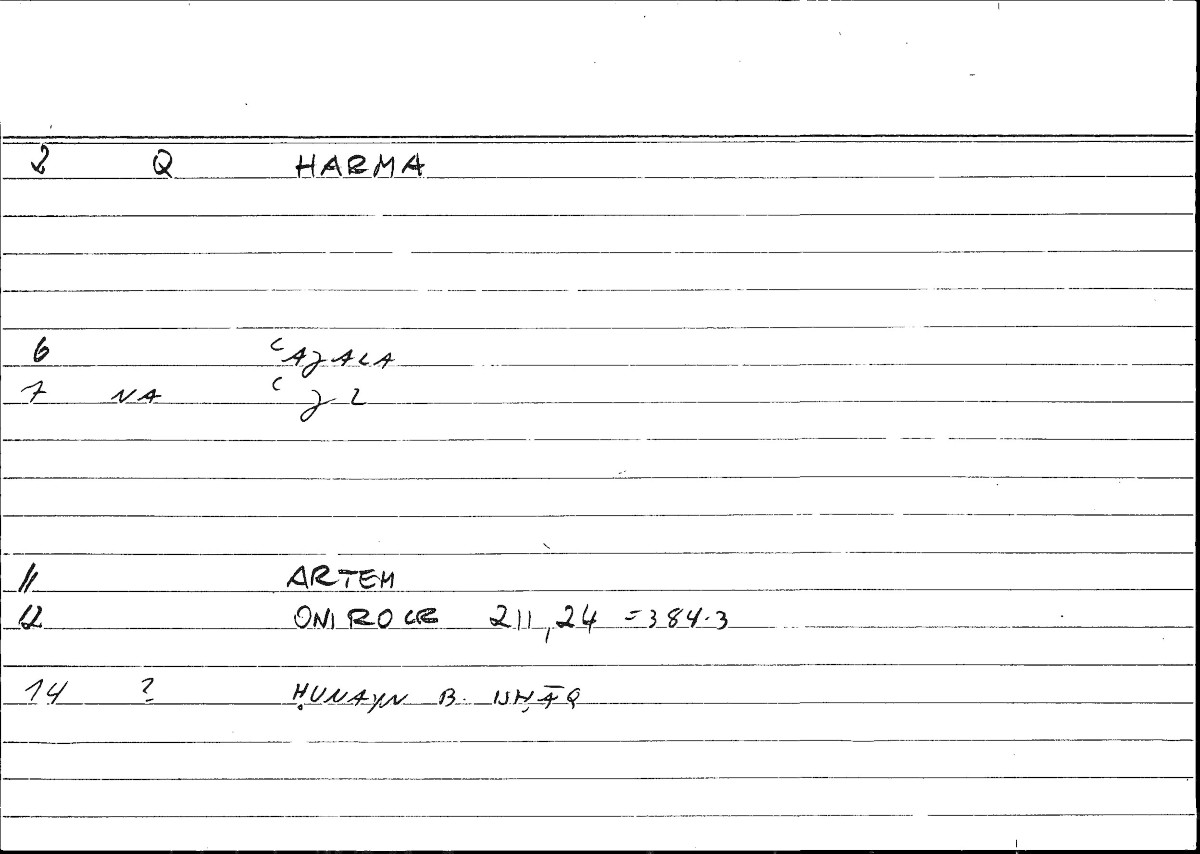 2 Q HARMA
6 ʿAJALA
7 NA ʿJL
11 ARTEM
12 ONIROCR 211,24 =384.3
14 ? ḤUNAYN B. ISḤĀQ